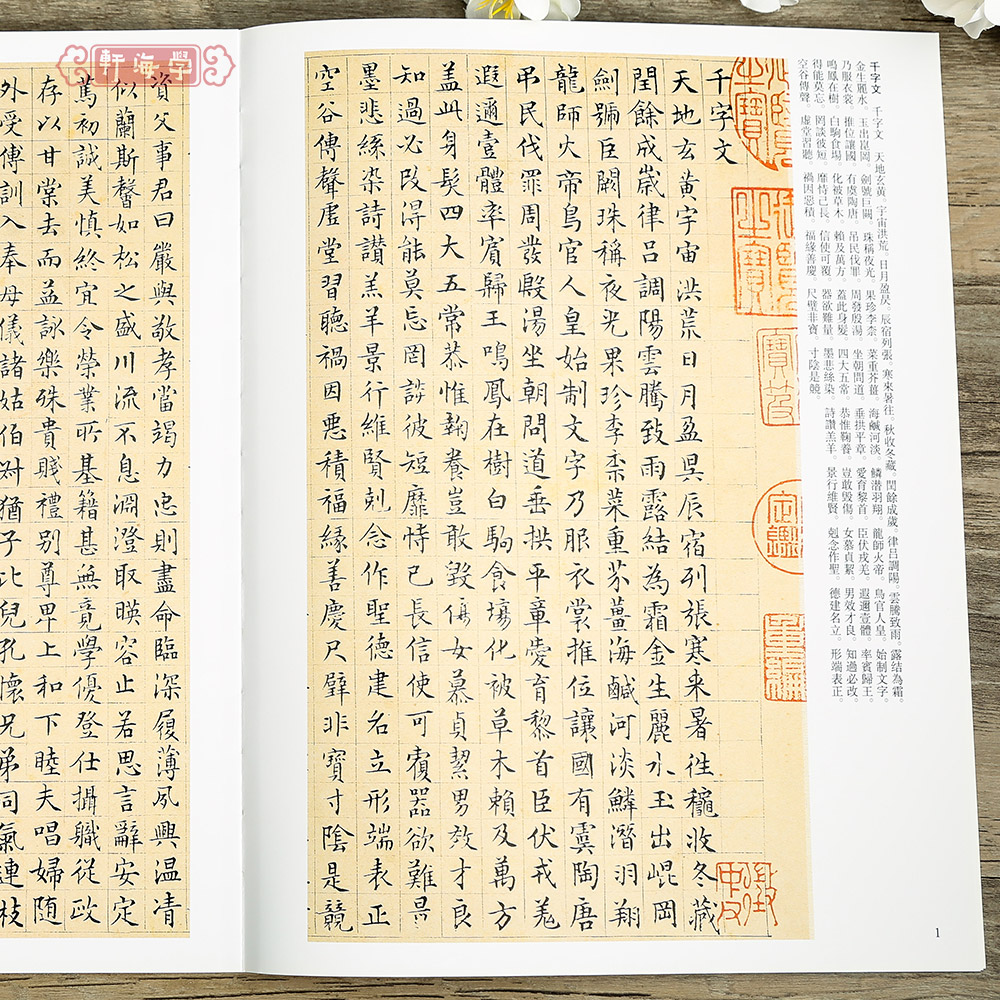 軒海學
千字文　千字文　天地玄黄。宇宙洪荒。日月盈昃。辰宿列張。寒來暑往。秋收冬藏。閏餘成歲。律吕調陽。雲騰致雨。露結為霜。
金生麗水。玉出崑岡。劍號巨闕。珠稱夜光。果珍李柰。菜重芥薑。海鹹河淡。鱗潛羽翔。龍師火帝。鳥官人皇。始制文字。
乃服衣裳。推位讓國。有虞陶唐。吊民伐罪。周發殷湯。坐朝問道。垂拱平章。愛育黎首。臣伏戎羌。遐邇壹體。率賓歸王。
鳴鳳在樹。白駒食場。化被草木。賴及萬方。蓋此身髮。四大五常。恭惟鞠養。豈敢毀傷。女慕貞絜。男效才良。知過必改。
得能莫忘。罔談彼短。靡恃己長。信使可覆。器欲難量。墨悲絲染。詩讚羔羊。景行維賢。剋念作聖。德建名立。形端表正。
空谷傳聲。虛堂習聽。禍因惡積。福緣善慶。尺璧非寶。寸陰是競。
千字文
天地玄黄宇宙洪荒日月盈昃辰宿列張寒来暑往穐收冬藏
閏餘成歲律吕調陽雲騰致雨露結為霜金生麗水玉出崐岡
劍號巨闕珠稱夜光果珍李柰菜重芥薑海鹹河淡鱗潛羽翔
龍師火帝鳥官人皇始制文字乃服衣裳推位讓國有虞陶唐
吊民伐罪周發殷湯坐朝問道垂拱平章愛育黎首臣伏戎羌
遐邇壹體率賓歸王鳴鳳在樹白駒食場化被草木賴及萬方
盖此身髮四大五常恭惟鞠養豈敢毀傷女慕貞絜男效才良
知過必改得能莫忘罔談彼短靡恃己長信使可覆器欲難量
墨悲絲染詩讃羔羊景行維賢剋念作聖德建名立形端表正
空谷傳聲虛堂習聽禍因惡積福緣善慶尺璧非寶寸陰是競
資父事君曰嚴與敬孝當竭力忠則盡命臨深履薄夙興温凊
似蘭斯馨如松之盛川流不息淵澄取暎容止若思言辭安定
篤初誠美慎終宜令榮業所基籍甚無竟學優登仕攝職從政
存以甘棠去而益詠樂殊貴賤禮别尊卑上和下睦夫唱婦随
外受傅訓入奉母儀諸姑伯叔猶子比兒孔懷兄弟同氣連枝
1